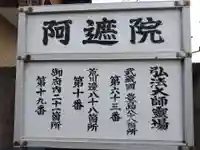 阿遮院
弘法大師霊場
武蔵國 豊島八十八ヶ所
第六十三番
荒川邊八十八箇所
第十番
御府内二十一箇所
第十九番